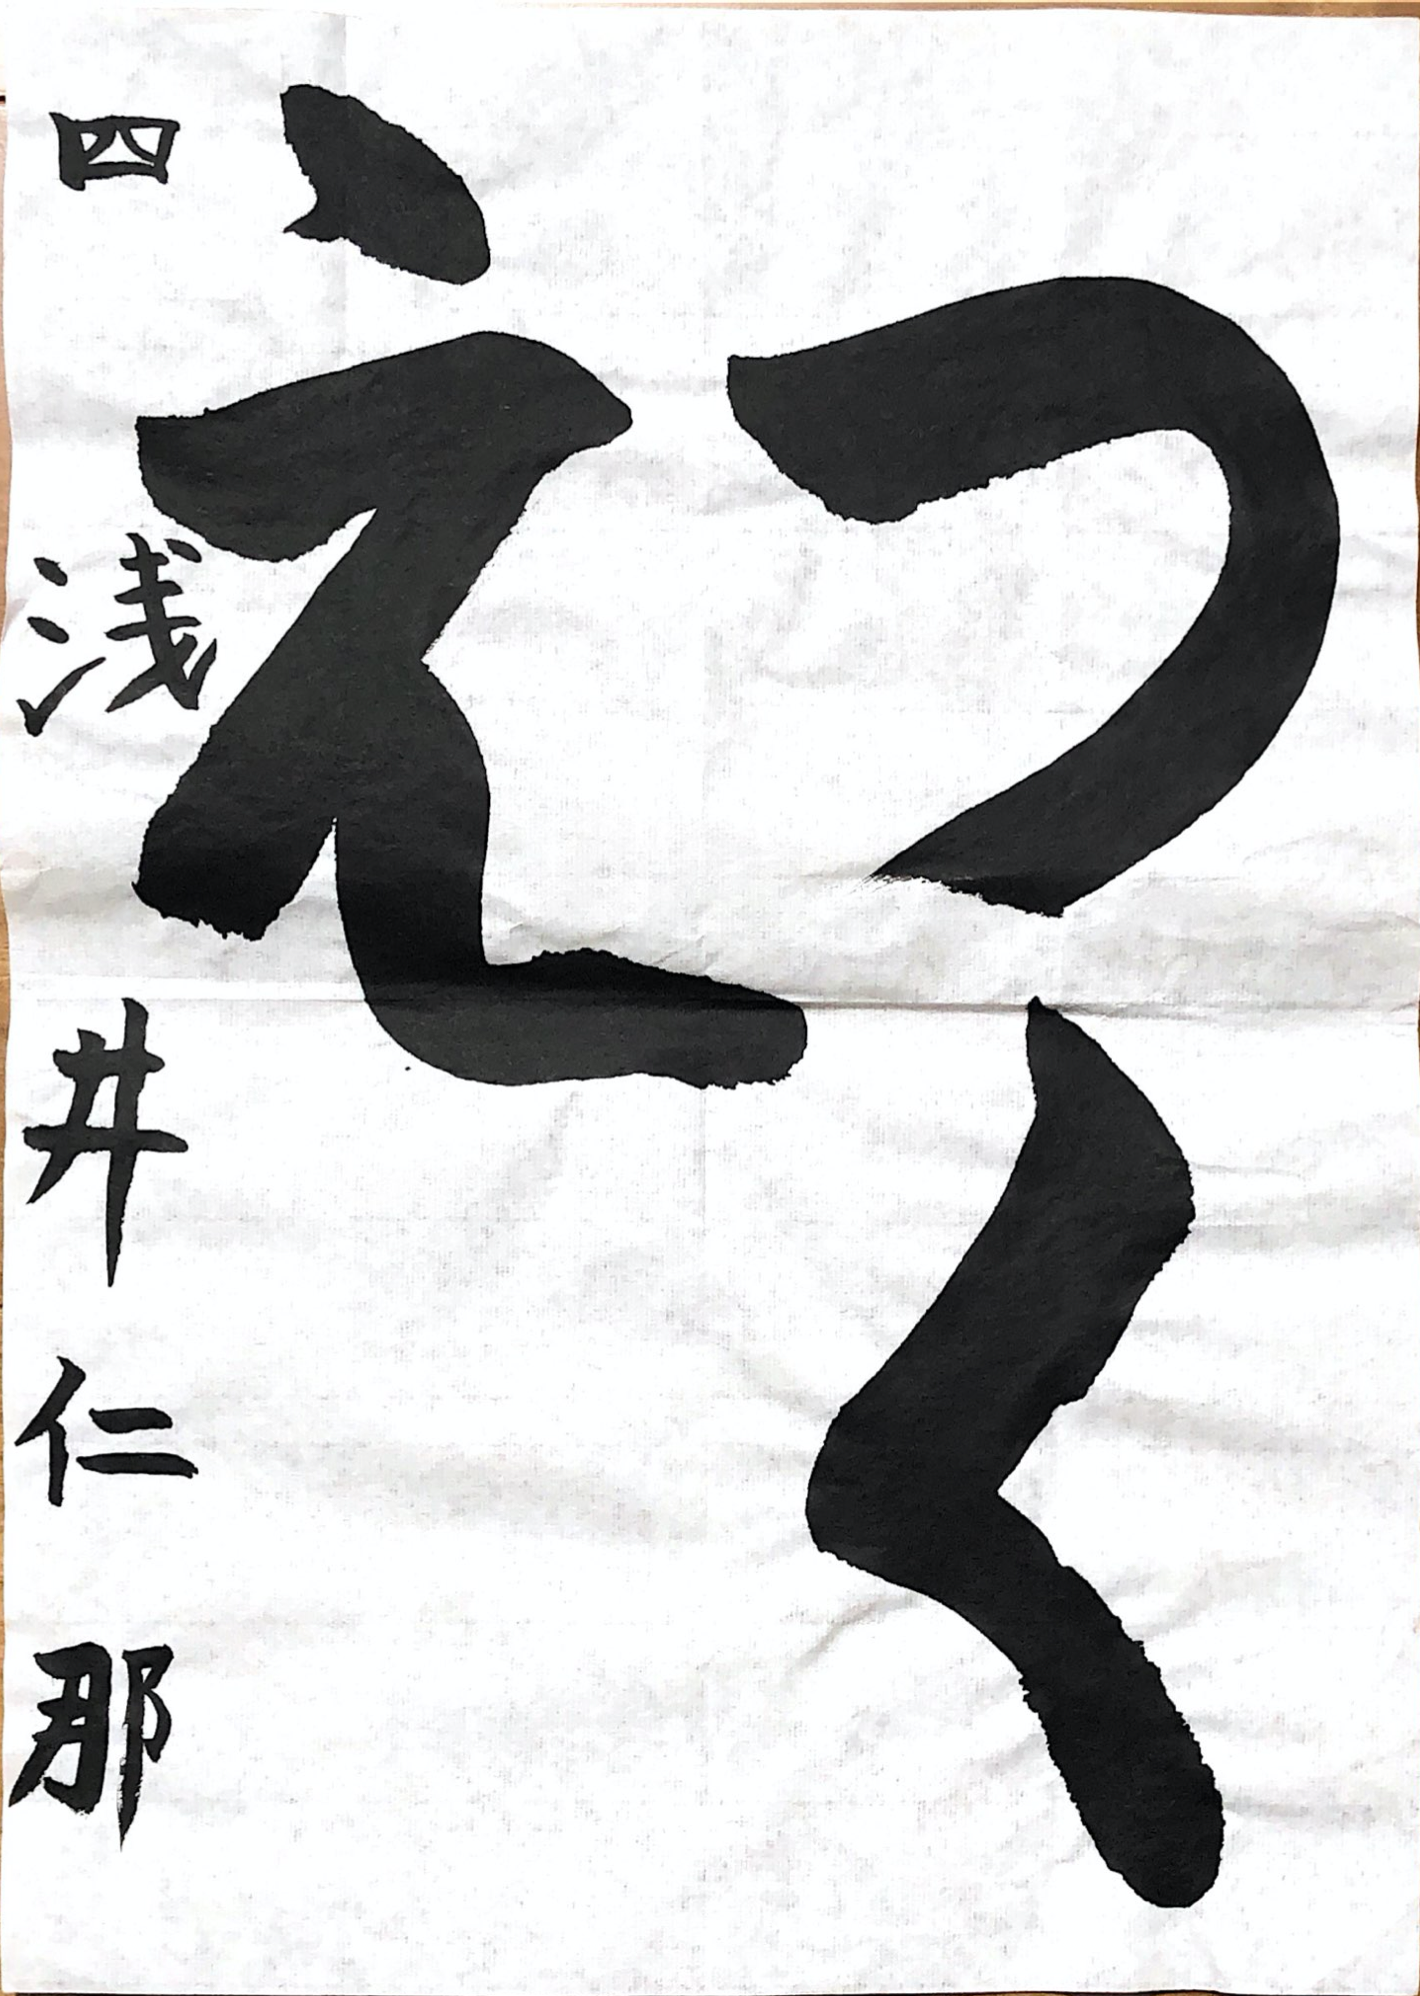 つくえ
四 浅井仁那